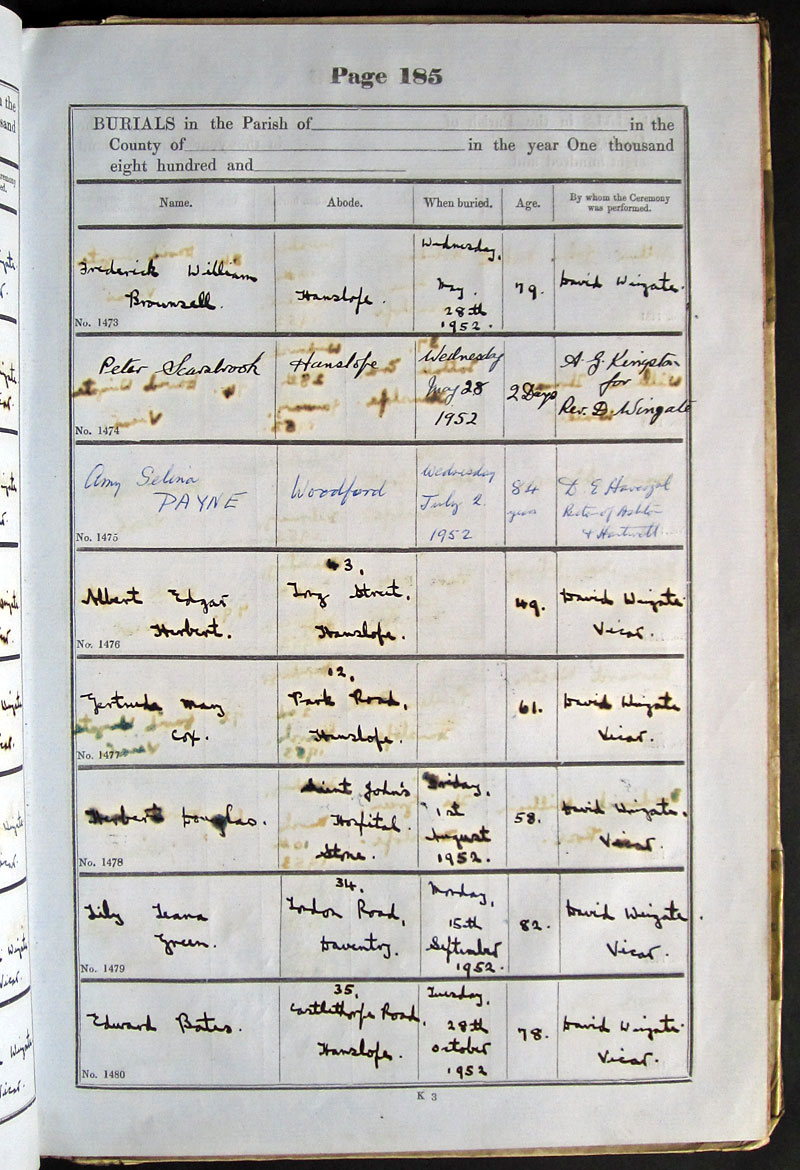 Page 185
BURIALS in the Parish of in the
County of in the year One thousand
eight hundred and
Name. Abode. When buried. Age. By whom the Ceremony was performed.
Frederick William
Brownsell.
Hanslope.
Wednesday,
May.
28th
1952.
79.
David Wingate.
No. 1473
Peter Scarsbrook
Hanslope
Wednesday
May 28
1952
2 Days
A. G. Kingston
for
Rev. D. Wingate
No. 1474
Amy Selina
PAYNE
Woodford
Wednesday
July 2
1952
84
years
D E Havergal
Rector of Ashton
& Hartwell
No. 1475
Albert Edgar
Herbert.
43,
Long Street,
Hanslope.
49.
David Wingate
Vicar.
No. 1476
Gertrude Mary
Cox.
12,
Park Road,
Hanslope.
61.
David Wingate
Vicar.
No. 1477
Herbert Douglas.
Saint John's
Hospital
Stone.
Friday,
1st
August
1952.
58.
David Wingate.
Vicar.
No. 1478
Lily
Green.
34,
London Road,
Daventry.
Monday,
15th
September
1952.
82.
David Wingate
Vicar.
No. 1479
Edward Bates.
35,
Castlethorpe Road,
Hanslope.
Tuesday,
28th
October
1952
78.
David Wingate
Vicar.
No. 1480
K 3